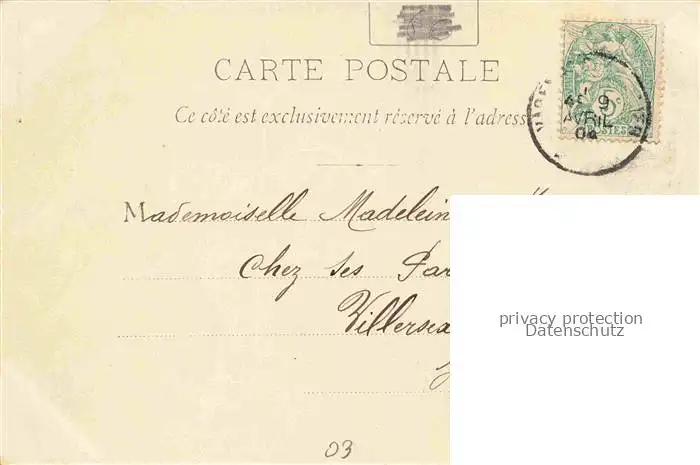 CARTE POSTALE
Ce côté est exclusivement réservé à l'adresse
5c
POSTES
9
AVRIL
04
Mademoiselle Madelein
Chez ses Par
Villersex
privacy protection
Datenschutz
03